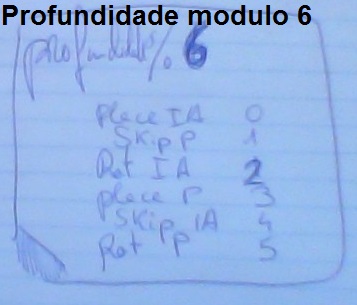 Profundidade modulo 6
profundidade % 6
place IA 0
Skip P 1
Rot IA 2
place P 3
Skip IA 4
Rot P 5